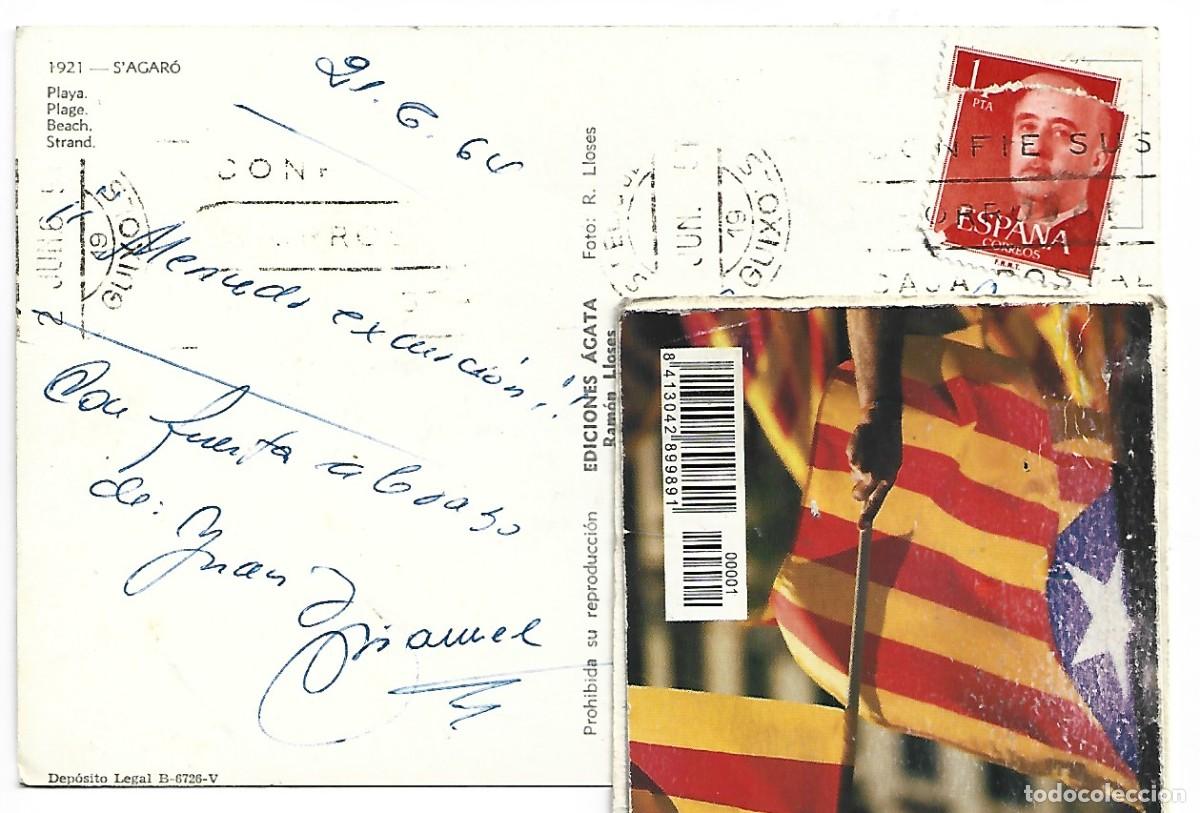 1921 — S'AGARÓ
Playa.
Plage.
Beach.
Strand.
21.6.64
¡¡Menuda excursión!!
Con fuerte abrazo
de: Juan y
Depósito Legal B-6726-V
Prohibida su reproducción EDICIONES ÁGATA Foto: R. Lloses
Ramón Lloses
JUN. 6
GUIXO
CONF
JUN.
19
GUIXOLS
CONFIE SUS
CAJA POSTAL
1 PTA
ESPAÑA
CORREOS
F.N.M.T.
8 413042 899891
00001
todocoleccion